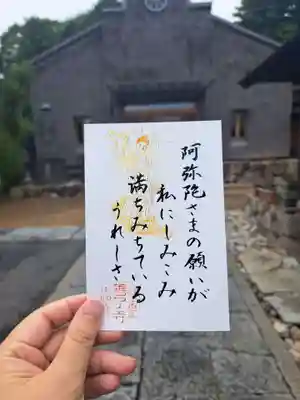 阿弥陀さまの願いが
私にしみこみ
満ちみちている
うれしさ